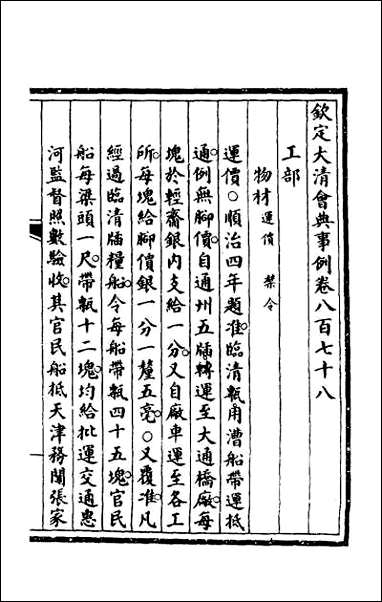 欽定大清會典事例卷八百七十八
工部
物材運價 禁令
運價○順治四年題准臨清甎用漕船帶運抵
通例無腳價自通州五牐轉運至大通橋廠每
塊於輕齎銀內支給一分又自廠車運至各工
所每塊給腳價銀一分一釐五毫○又覆准凡
經過臨清牐糧船令每船帶甎四十五塊官民
船每梁頭一尺帶甎十二塊均給批運交通惠
河監督照數驗收其官民船抵天津務關張家